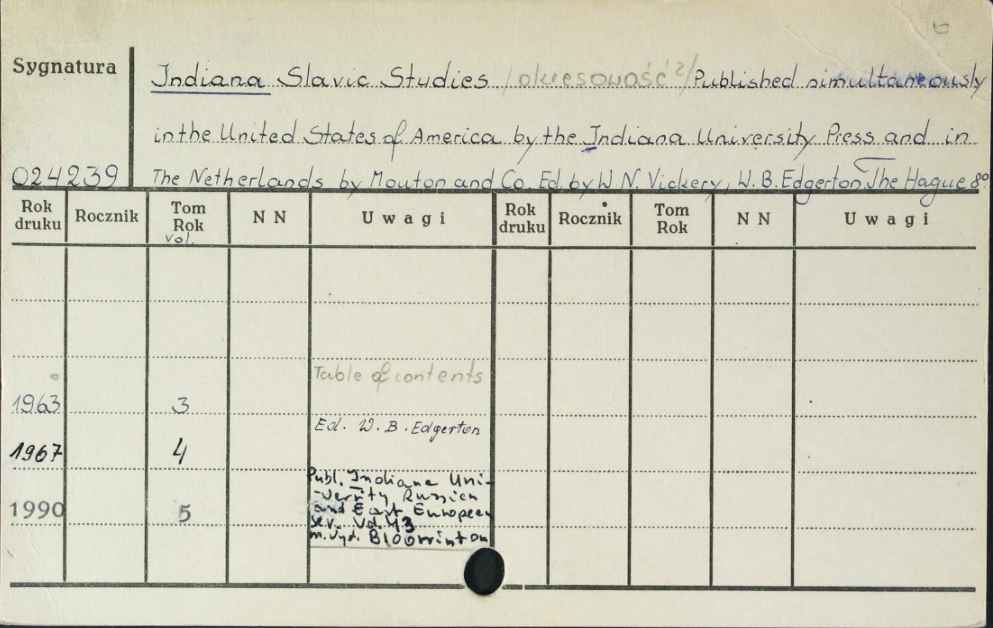 Sygnatura
Indiana Slavic Studies /okresowość ?/ Published simultaneously
in the United States of America by the Indiana University Press and in
024239 The Netherlands by Mouton and Co. Ed by W N. Vickery, W. B. Edgerton The Hague 8°
Rok druku Rocznik Tom Rok vol. N N Uwagi Rok druku Rocznik Tom Rok N N Uwagi
Table of contents
1963 3
Ed. W. B. Edgerton
1967 4
Publ. Indiana Uni-
-versity Russian
1990 5 and East European
ser. Vol. 43
m. wyd. Bloomington